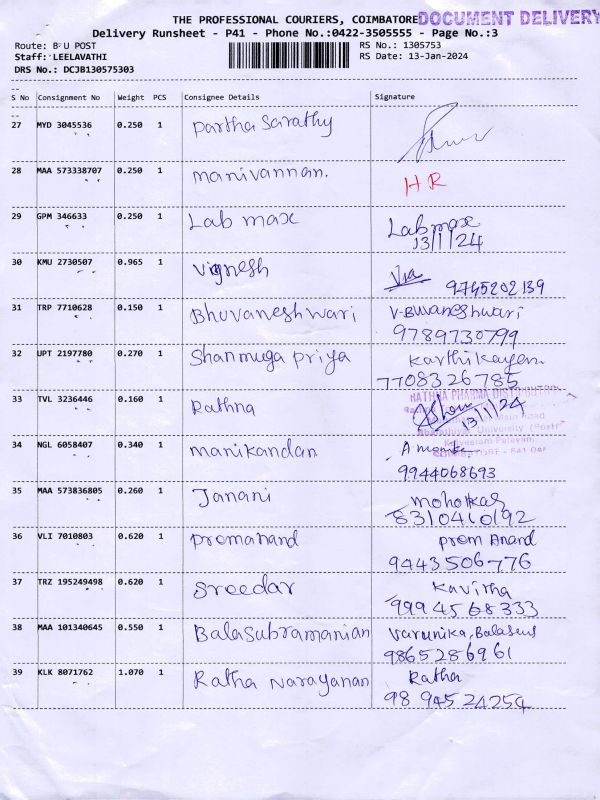 THE PROFESSIONAL COURIERS, COIMBATORE DOCUMENT DELIVERY
Delivery Runsheet - P41 - Phone No.:0422-3505555 - Page No.:3
Route: B U POST RS No.: 1305753
Staff: LEELAVATHI RS Date: 13-Jan-2024
DRS No.: DCJB130575303
S No Consignment No Weight PCS Consignee Details Signature
27 MYD 3045536 0.250 1 Partha Sarathy
28 MAA 573338707 0.250 1 manivannan. HR
29 GPM 346633 0.250 1 Lab max Labmax
13/1/24
30 KMU 2730507 0.965 1 Vignesh 9745202139
31 TRP 7710628 0.150 1 Bhuvaneshwari V-Buvaneshwari
9789730799
32 UPT 2197780 0.270 1 Shanmuga Priya Karthikayen.
7708326785
RATHNA PHARMA DISTRIBUTORS
33 TVL 3236446 0.160 1 Rathna 13/1/24
Main Road
University (Post)
34 NGL 6058407 0.340 1 manikandan
9944068693
35 MAA 573836805 0.260 1 Janani
8310410192
36 VLI 7010803 0.620 1 Promanand prom Anand
9443506776
37 TRZ 195249498 0.620 1 Sreedar Kavitha
9994568333
38 MAA 101340645 0.550 1 Balasubramanian Varunika, Balasus
9865286961
39 KLK 8071762 1.070 1 Ratha Narayanan Ratha
9894524254